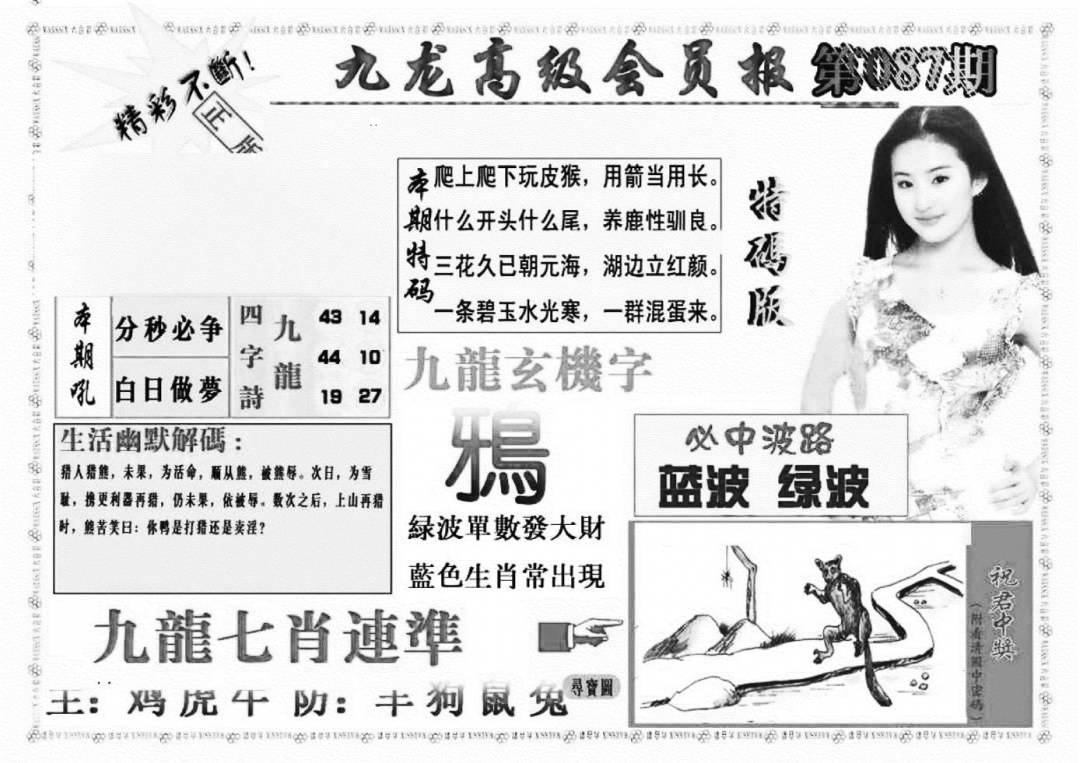 精彩不斷!
正版
九龙高级会员报
第087期
本期特码
爬上爬下玩皮猴，用箭当用长。
什么开头什么尾，养鹿性驯良。
三花久已朝元海，湖边立红颜。
一条碧玉水光寒，一群混蛋来。
特碼版
本期吼
分秒必争
白日做夢
四字詩
九龍
43 14
44 10
19 27
九龍玄機字
鴉
緑波單數發大財
藍色生肖常出現
生活幽默解碼：
猎人猎熊，未果，为活命，顺从熊，被熊辱。次日，为雪
耻，携更利器再猎，仍未果，依被辱。数次之后，上山再猎
时，熊苦笑曰：你鸭是打猎还是卖淫？
必中波路
蓝波 绿波
九龍七肖連準
主：鸡虎牛 防：羊狗鼠兔
尋寶圖
祝君中奖
（附看清圖中密碼）